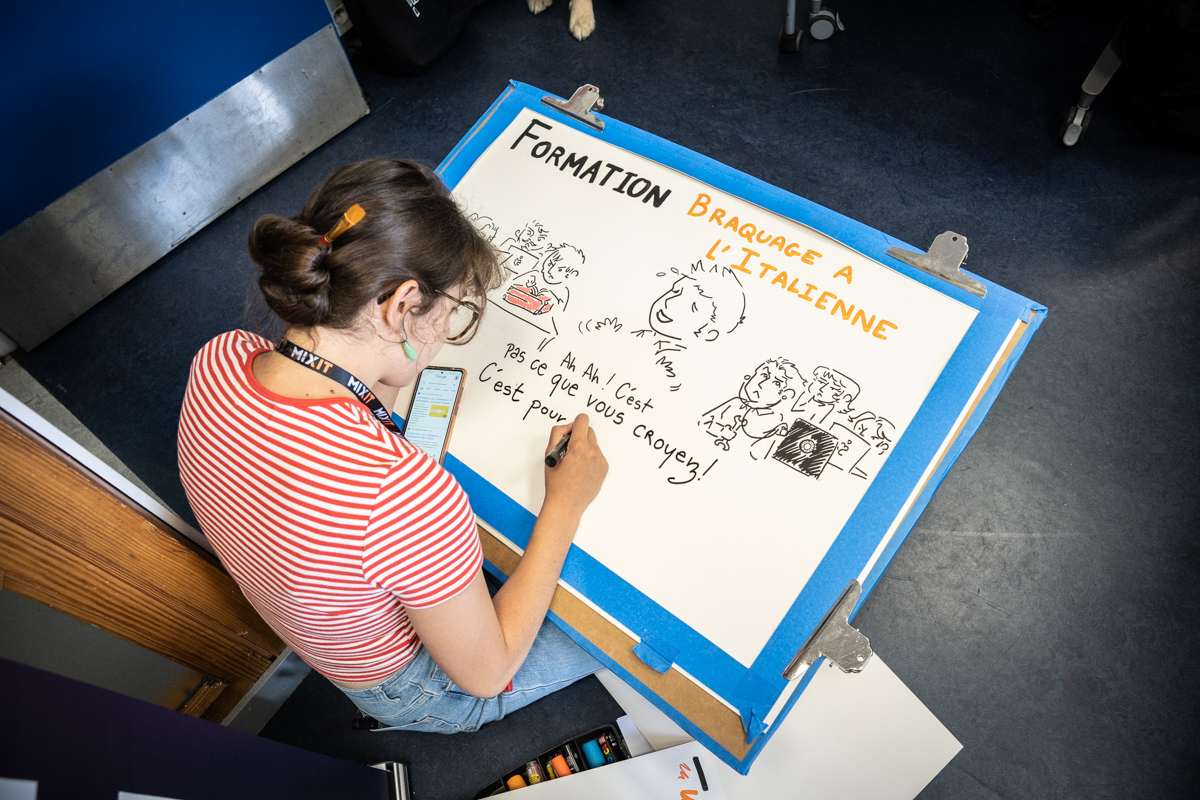 FORMATION BRAQUAGE A
L'ITALIENNE
Ah Ah! C'est
pas ce que vous croyez!
C'est pour
MIXIT MIXIT